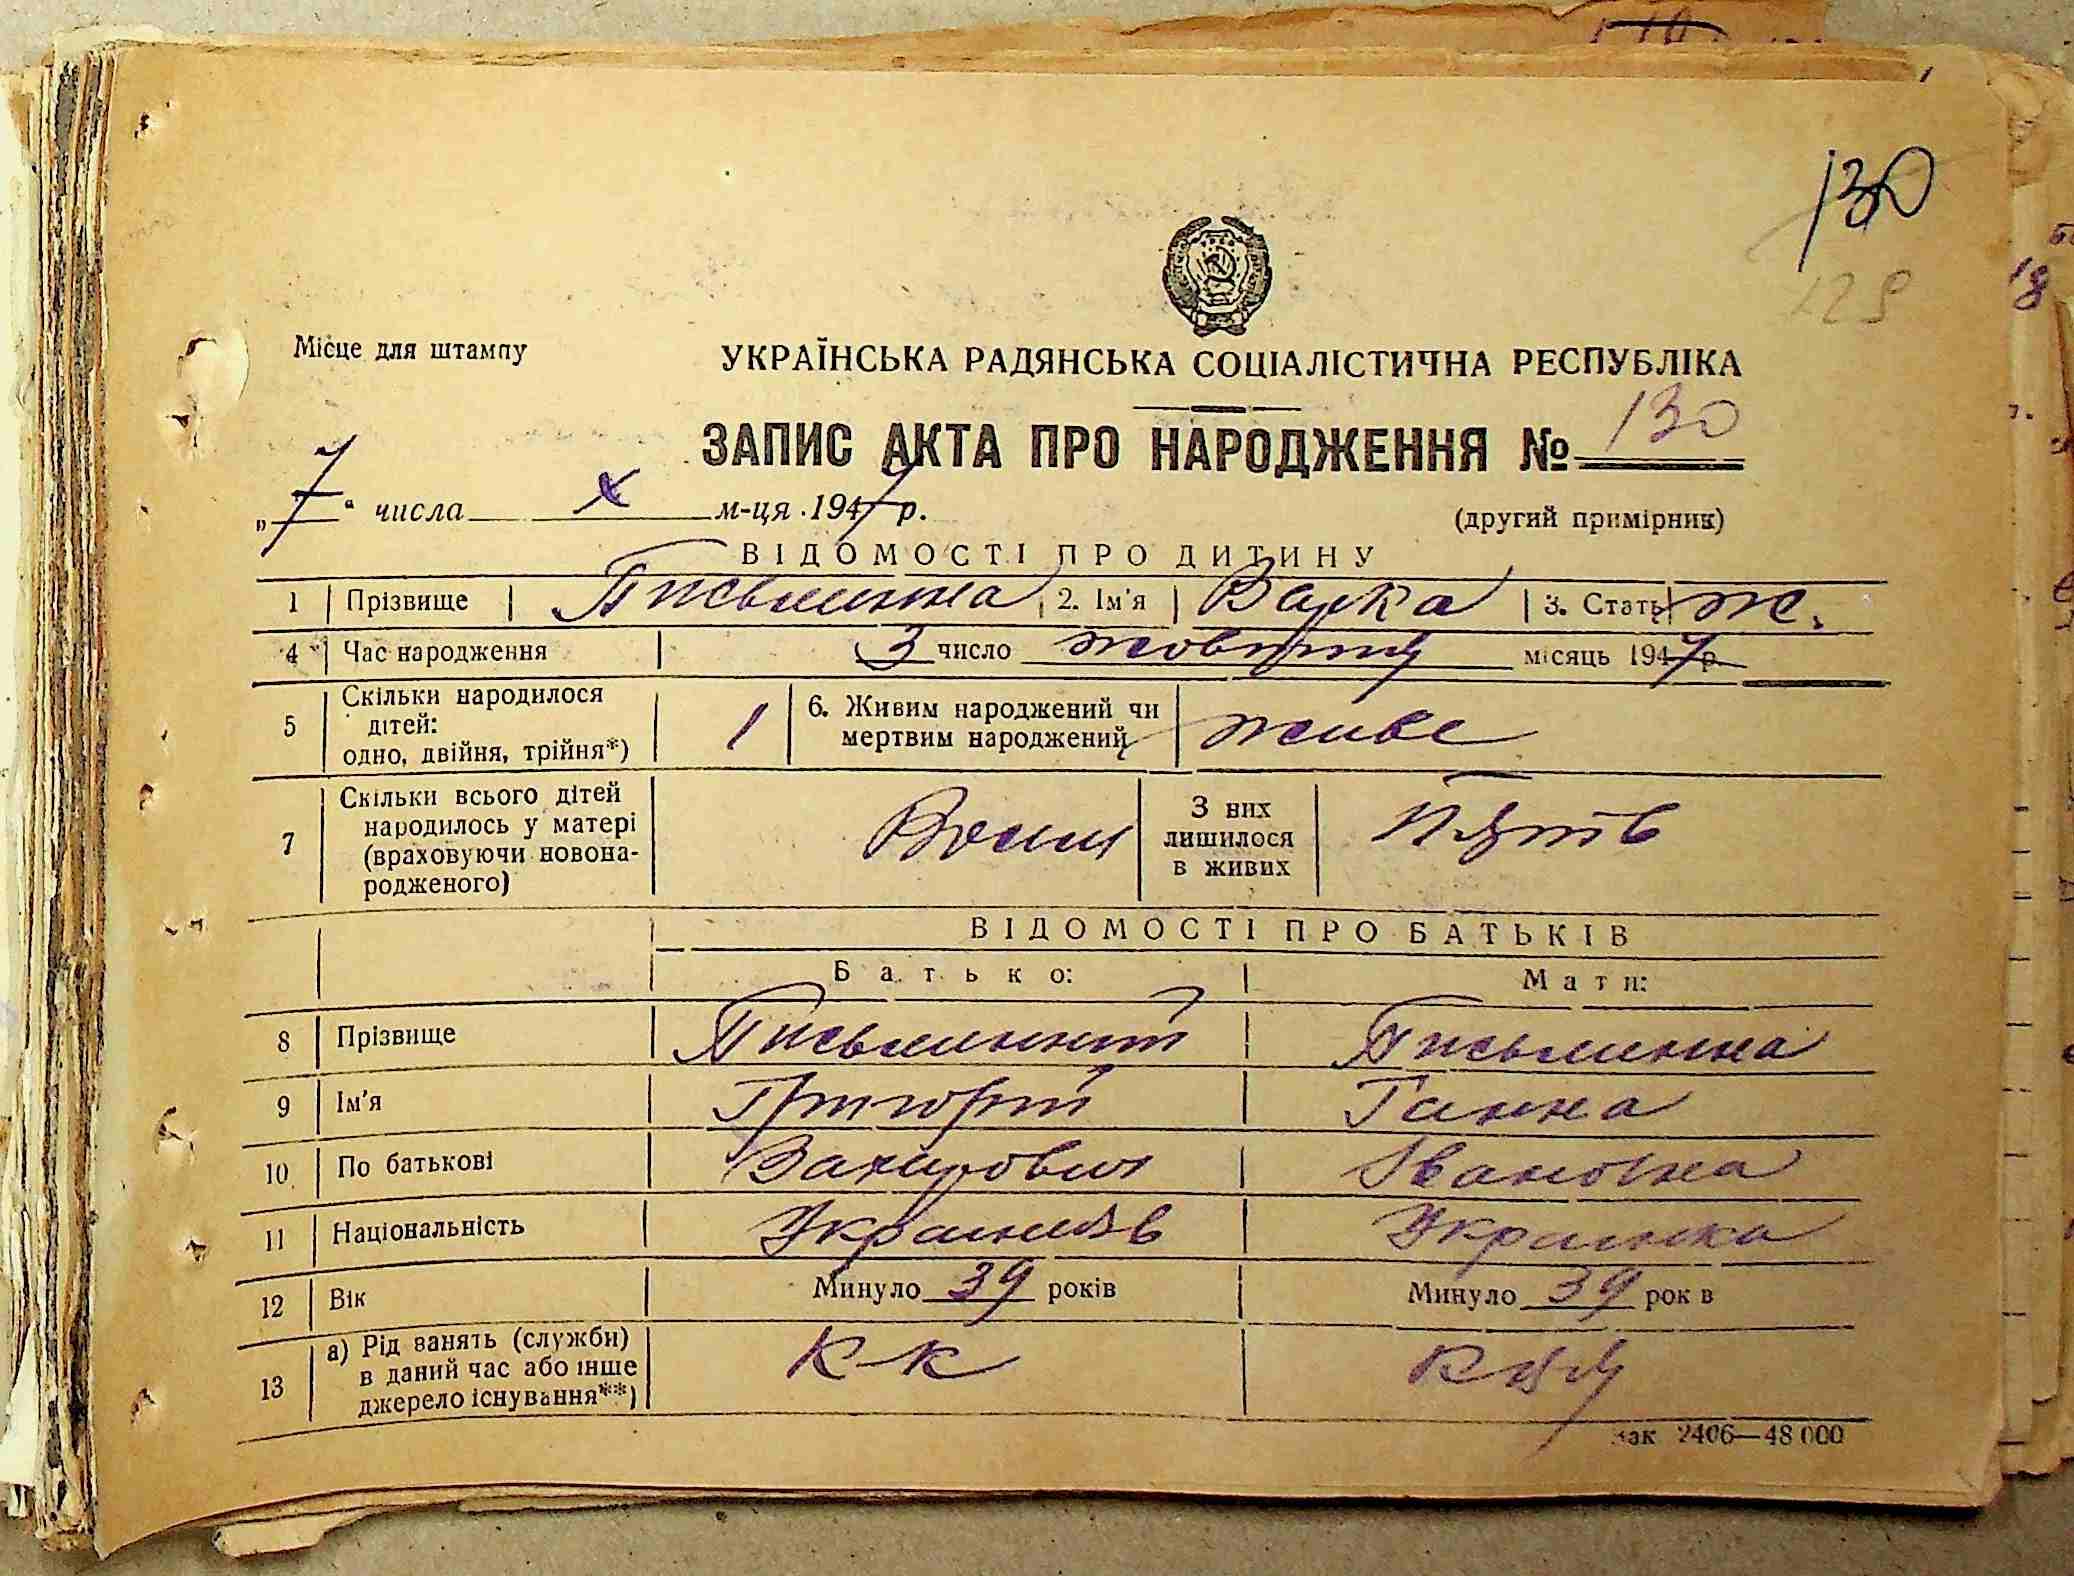 130
129
18
Місце для штампу
УКРАЇНСЬКА РАДЯНСЬКА СОЦІАЛІСТИЧНА РЕСПУБЛІКА
ЗАПИС АКТА ПРО НАРОДЖЕННЯ № 130
„7“ числа X м-ця 1947 р.
(другий примірник)
ВІДОМОСТІ ПРО ДИТИНУ
1 Прізвище Письминна 2. Ім'я Варка 3. Стать ж.
4 Час народження 3 число жовтня місяць 1947 р.
5 Скільки народилося дітей: одно, двійня, трійня*) 1 6. Живим народжений чи мертвим народжений живе
7 Скільки всього дітей народилось у матері (враховуючи новонародженого) Восим З них лишилося в живих Пять
ВІДОМОСТІ ПРО БАТЬКІВ
Батько: Мати:
8 Прізвище Письминний Письминна
9 Ім'я Григорій Ганна
10 По батькові Захарович Івановна
11 Національність Украинець Украинка
12 Вік Минуло 39 років Минуло 39 рок в
13 а) Рід занять (служби) в даний час або інше джерело існування**) К-к
зак 2406—48 000